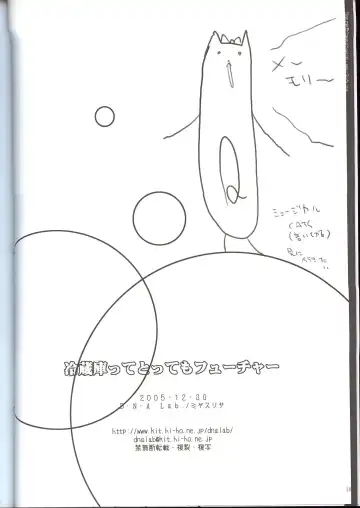 メン
モリー
ミュージカル
CATS
冷蔵庫ってとってもフューチャー
2005・12・30
D・N・A Lab./ミヤスリサ
http://www.kit.hi-ho.ne.jp/dnalab/
dnalab@kit.hi-ho.ne.jp
禁無断転載・複製・複写